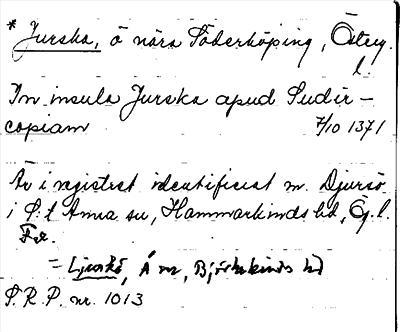 * Jurska, ö nära Söderköping, Österg.
l.
In insula Jurska apud Sudir-
copiam 7/10 1371
Är i registret identifierat m. Djursö
i S:t Anna sn, Hammarkinds hd, Ög. l.
= Ljuskö, Å sn, Björkekinds hd
S.R.P. nr. 1013